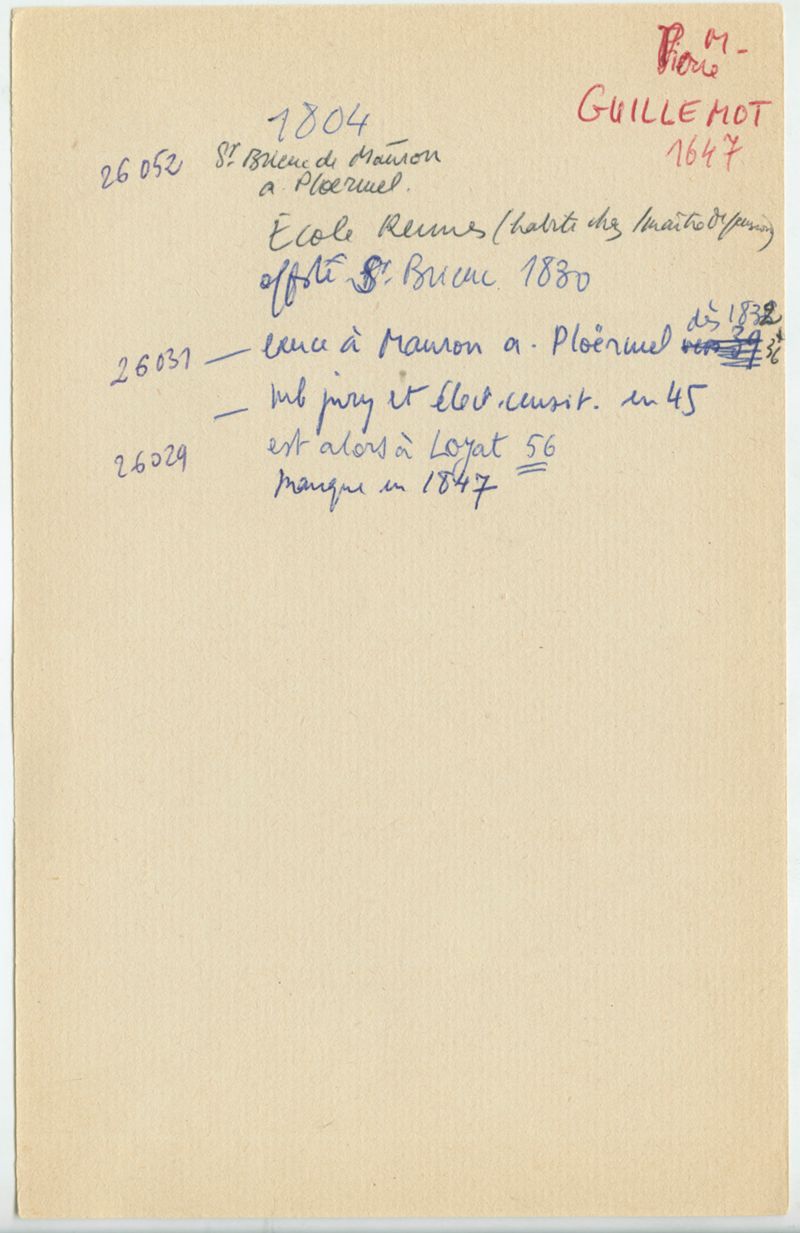 Pierre M-
GUILLEMOT
1647
1804
26052 St Brieuc de Mauron
a. Ploërmel.
École Rennes (habite chez 1 maître de pension)
offsté St. Brieuc 1830
26031 — exerce à Mauron a. Ploërmel dès 1832
— mb jury et élect. censit. en 45
26029 est alors à Loyat 56
manque en 1847